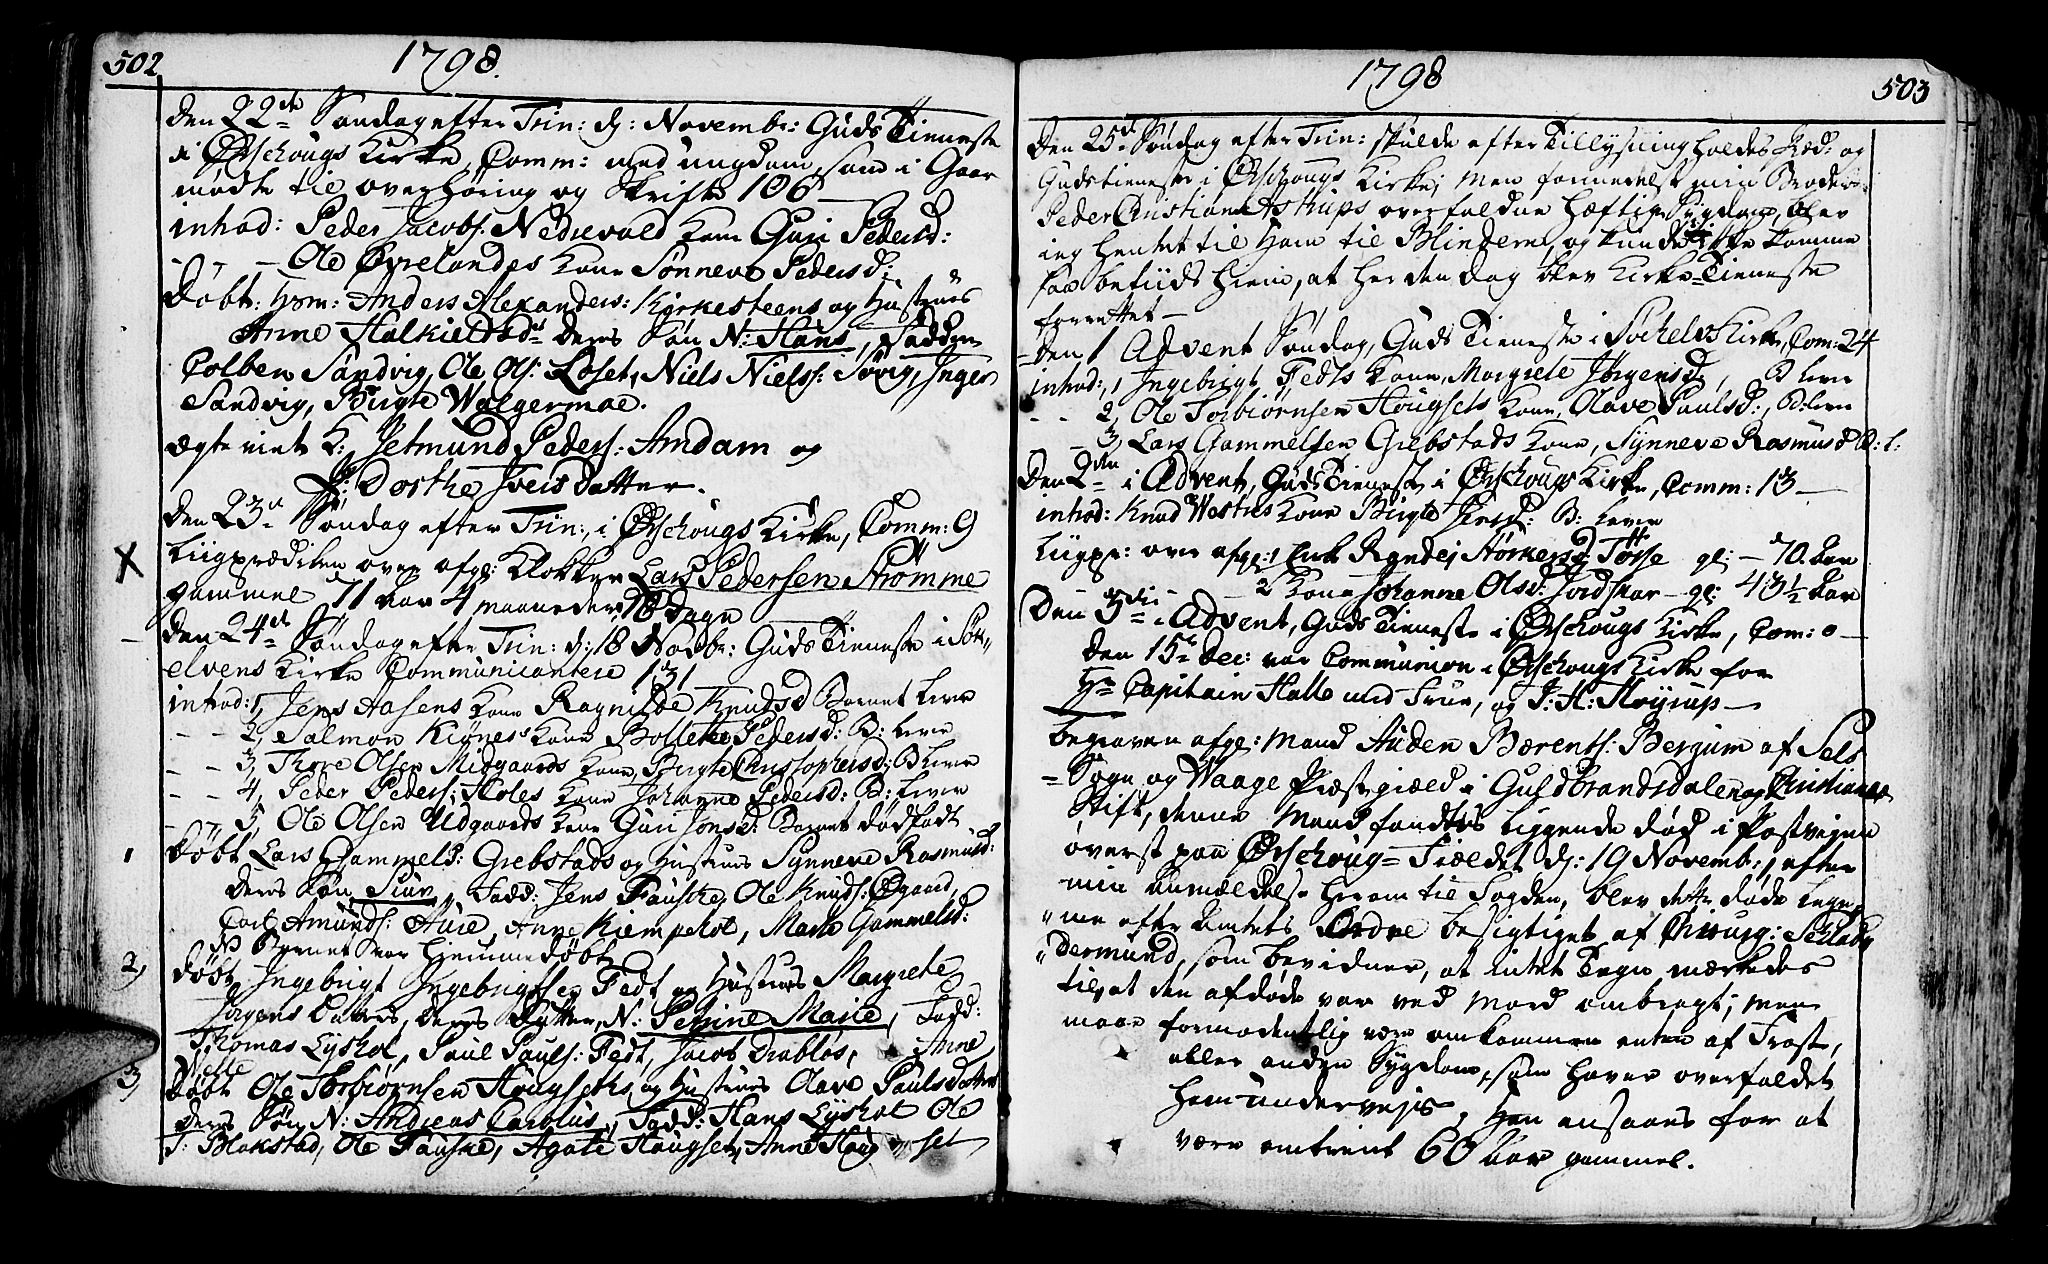 502
1798.
Den 22de Søndag efter Trin: d: Novembr: Guds Tieneste
i Ørschougs Kirke, Comm: med ungdom, som i Gaar
mødte til overhøring og Skrifte 106 —
inhod: Peder Jacobs: Nedrevold Kone Guri Pedersd:
- - - Ole Øvrelandes Kone Sønneve Pedersd:
Døbt: Hjem: Anders Alexanders: Kirkesteens og Hustrues
Anne Halkieldsdr deres Søn N: Hans, Fadder
Colben Sandvig, Ole Ols: Løset, Niels Nielss: Søvig, Inger
Sandvig, Birgte Walgermoe.
Ægteviet K: Jetmund Peders: Amdam og
P: Dorthe Ivers Datter.
Den 23de Søndag efter Trin:, i Ørschougs Kirke, Comm: 9
X
Liigprædiken over afg: Klokker Lars Pedersen Strømme
gammel 71 aar 4 maaneder, 18 Dage
Den 24de Søndag efter Trin: d: 18 Novbr: Guds Tieneste i Søk-
elvens Kirke Communicantere 131
inhod: 1, Jens Aasens Kone Ragnilde Knudsd Barnet lever
- - 2, Salmon Kiønes Kone Bollette Pedersd: B: lever
- - 3, Thore Olsen Midgaards Kone, Birgte Christophersd: B lever
- - 4, Peder Peders: Holes Kone Johanne Pedersd: B: lever
- - 5, Ole Olsen Udgaards Kone Guri Jonsd: Barnet dødfødt
1
Døbt Lars Gammels: Grebstads og Hustrues Synneve Rasmusd:
deres Søn Siur, Fadd: Jens Fauske, Ole Knuds: Øgaard,
Carl Amunds: Aure, Anne Kiempehol, Marte Gammelsd:
NB Barnet var hjemmedøbt
2,
Døbt Ingebrigt Ingebrigtsen Fedt og Hustrues Margrete
Jørgens Datters, deres Datter, N: Petrine Marie, Fadd:
Thomas Lyshol, Paul Pauls: Fedt, Jacob Drabløs, Anne
Welle
3,
Døbt Ole Torbiørnsen Hougseths og Hustrues Olave Pauls Datters
deres Søn N: Andreas Carolus, Fadd: Hans Lyshol Ole
T: Blakstad, Ole Fauske, Agate Hougset, Anne Houg set
1798
503
Den 25de Søndag efter Trin: skulde efter Tillysning holdes Præd: og
Gudstieneste i Ørschougs Kirke; men formedelst min Broder
Peder Christian Astrups overfaldne hæftige Sygdom, blev
ieg hentet til ham til Blindem, og kunde ikke komme
saa betiids hiem, at her den dag blev Kirke-Tieneste
forrettet —
Den 1 Advent Søndag, Guds Tieneste i Søchelvs Kirke, Com: 24
inhod:, 1 Ingebrigt Fedts Kone, Margrete Jørgensd, B lever
- - 2, Ole Torbiørnsen Hougsets Kone, Olave Paulsd:, B: lever
- 3, Lars Gammelsen Grebstads Kone, Synneve Rasmusd B: l:
Den 2den i Advent, Guds Tieneste i Ørschougs Kirke, Comm: 13 —
inhod: Knud Westres Kone Birgte B: lever
Liigpr: over afg: 1 Enke Ragnele Størkersd Tøsse gl: — 70. Aar
— 2 Kone Johanne Olsd: Jordskar — gl: 43½ Aar
Den 3die i Advent, Guds Tieneste i Ørschougs Kirke, Com: 0 —
Den 15de Dec: var Communion i Ørschougs Kirke for
Hr Capitain Halle med Frue, og J: H: Høyrup —
begraven afg: Mand Auden Bærents: Bergum af Sels
= Sogn og Waage Præstegiæld i Guldbrandsdalen og Christiania
Stift, denne Mand fandtes liggende død i Postvejen
øverst paa Ørschoug = Fieldet d: 19 Novemb:, efter
min Anmældelse herom til Fogden, blev dette døde Lege-
"me efter Amtets Ordre besigtiget af Chirurg: Schlad
"dermund, som bevidner, at intet Tegn mærkedes
til, at den afdøde var ved Mord ombragt; men
maae formodentlig være omkommen enten af Frost,
eller anden Sygdom, som haver overfaldet
ham undervejs, Han ansaaes for at
være omtrent 60 Aar gammel.